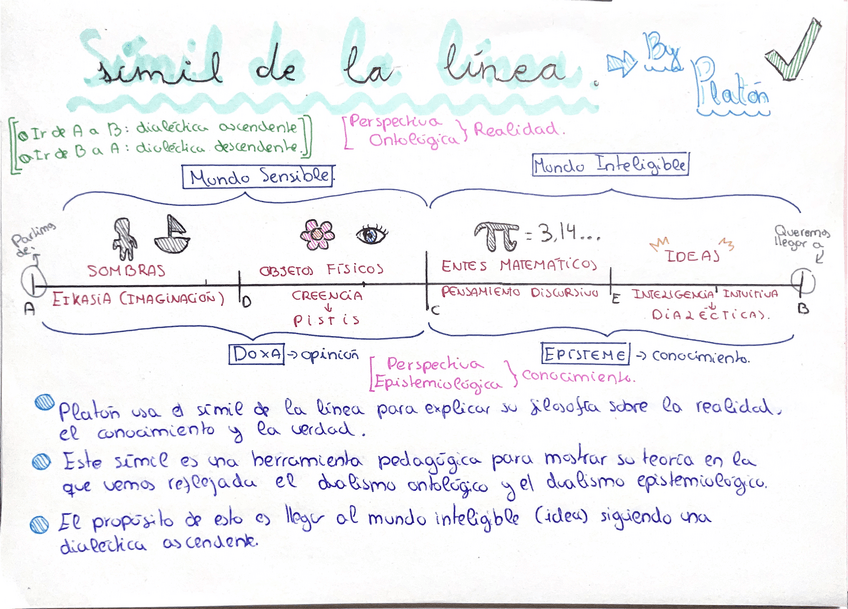 símil de la línea.
By
Platón
Ir de A a B: dialéctica ascendente
Ir de B a A: dialéctica descendente.
Perspectiva
Ontológica
Realidad.
Mundo Sensible.
Mundo Inteligible
Partimos
de:
Queremos
llegar a
= 3,14...
SOMBRAS
OBJETOS FÍSICOS
ENTES MATEMÁTICOS
IDEAS
A
EIKASIA (IMAGINACIÓN)
D
CREENCIA
PISTIS
C
PENSAMIENTO DISCURSIVO
E
INTELIGENCIA INTUITIVA
DIALÉCTICAS.
B
DOXA → opinión
EPISTEME → conocimiento.
Perspectiva
Epistemiológica
Conocimiento.
Platón usa el símil de la línea para explicar su filosofía sobre la realidad,
el conocimiento y la verdad.
Este símil es una herramienta pedagógica para mostrar su teoría en la
que vemos reflejada el dualismo ontológico y el dualismo epistemiológico.
El propósito de esto es llegar al mundo inteligible (idea) siguiendo una
dialéctica ascendente.